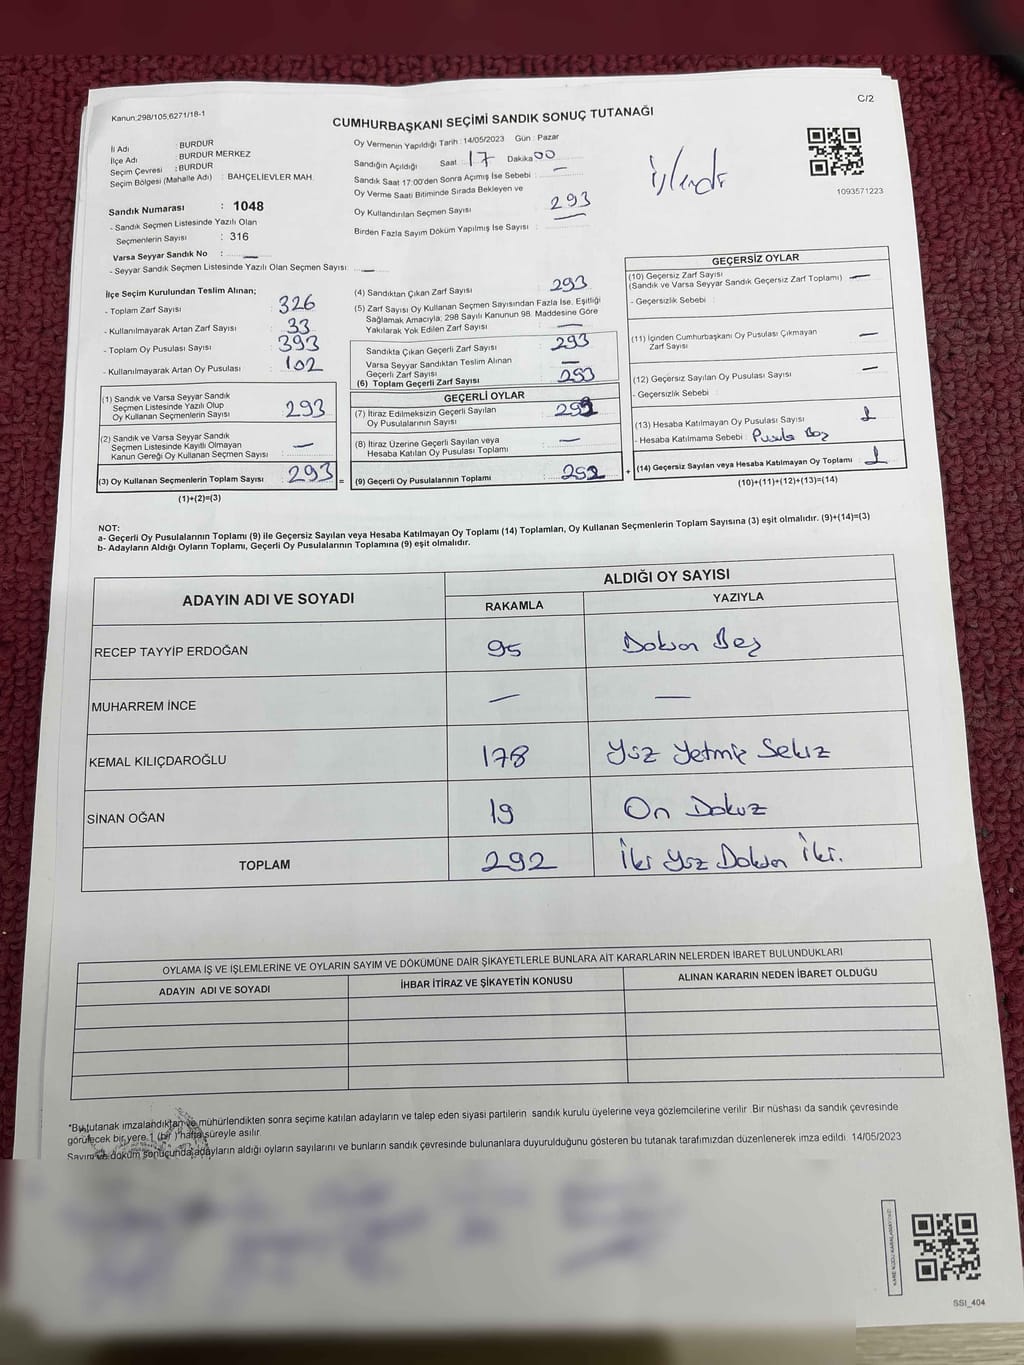 Kanun;298/105,6271/18-1
C/2
CUMHURBAŞKANI SEÇİMİ SANDIK SONUÇ TUTANAĞI
İl Adı : BURDUR
İlçe Adı : BURDUR MERKEZ
Seçim Çevresi : BURDUR
Seçim Bölgesi (Mahalle Adı) : BAHÇELİEVLER MAH.
Sandık Numarası : 1048
- Sandık Seçmen Listesinde Yazılı Olan
Seçmenlerin Sayısı : 316
Varsa Seyyar Sandık No : —
- Seyyar Sandık Seçmen Listesinde Yazılı Olan Seçmen Sayısı: —
Oy Vermenin Yapıldığı Tarih : 14/05/2023 Gün : Pazar
Sandığın Açıldığı Saat 17 Dakika 00
Sandık Saat 17:00'den Sonra Açımış İse Sebebi : —
Oy Verme Saati Bitiminde Sırada Bekleyen ve
Oy Kullandırılan Seçmen Sayısı : 293
Birden Fazla Sayım Döküm Yapılmış İse Sayısı :
İşlendi
1093571223
İlçe Seçim Kurulundan Teslim Alınan;
- Toplam Zarf Sayısı : 326
- Kullanılmayarak Artan Zarf Sayısı : 33
- Toplam Oy Pusulası Sayısı : 393
- Kullanılmayarak Artan Oy Pusulası : 102
(1) Sandık ve Varsa Seyyar Sandık
Seçmen Listesinde Yazılı Olup
Oy Kullanan Seçmenlerin Sayısı : 293
(2) Sandık ve Varsa Seyyar Sandık
Seçmen Listesinde Kayıtlı Olmayan
Kanun Gereği Oy Kullanan Seçmen Sayısı : —
(3) Oy Kullanan Seçmenlerin Toplam Sayısı : 293 =
(1)+(2)=(3)
(4) Sandıktan Çıkan Zarf Sayısı : 293
(5) Zarf Sayısı Oy Kullanan Seçmen Sayısından Fazla İse, Eşitliği
Sağlamak Amacıyla; 298 Sayılı Kanunun 98. Maddesine Göre
Yakılarak Yok Edilen Zarf Sayısı : —
Sandıkta Çıkan Geçerli Zarf Sayısı : 293
Varsa Seyyar Sandıktan Teslim Alınan
Geçerli Zarf Sayısı : —
(6) Toplam Geçerli Zarf Sayısı : 293
GEÇERLİ OYLAR
(7) İtiraz Edilmeksizin Geçerli Sayılan
Oy Pusulalarının Sayısı :
(8) İtiraz Üzerine Geçerli Sayılan veya
Hesaba Katılan Oy Pusulası Toplamı : —
(9) Geçerli Oy Pusulalarının Toplamı : 292 +
GEÇERSİZ OYLAR
(10) Geçersiz Zarf Sayısı : —
(Sandık ve Varsa Seyyar Sandık Geçersiz Zarf Toplamı)
- Geçersizlik Sebebi :
(11) İçinden Cumhurbaşkanı Oy Pusulası Çıkmayan
Zarf Sayısı : —
(12) Geçersiz Sayılan Oy Pusulası Sayısı : —
- Geçersizlik Sebebi :
(13) Hesaba Katılmayan Oy Pusulası Sayısı : 1
- Hesaba Katılmama Sebebi : Pusula Boş
(14) Geçersiz Sayılan veya Hesaba Katılmayan Oy Toplamı : 1
(10)+(11)+(12)+(13)=(14)
NOT:
a- Geçerli Oy Pusulalarının Toplamı (9) ile Geçersiz Sayılan veya Hesaba Katılmayan Oy Toplamı (14) Toplamları, Oy Kullanan Seçmenlerin Toplam Sayısına (3) eşit olmalıdır. (9)+(14)=(3)
b- Adayların Aldığı Oyların Toplamı, Geçerli Oy Pusulalarının Toplamına (9) eşit olmalıdır.
ADAYIN ADI VE SOYADI
ALDIĞI OY SAYISI
RAKAMLA YAZIYLA
RECEP TAYYİP ERDOĞAN 95 Doksan Beş
MUHARREM İNCE — —
KEMAL KILIÇDAROĞLU 178 Yüz Yetmiş Sekiz
SİNAN OĞAN 19 On Dokuz
TOPLAM 292 İki Yüz Doksan İki.
OYLAMA İŞ VE İŞLEMLERİNE VE OYLARIN SAYIM VE DÖKÜMÜNE DAİR ŞİKAYETLERLE BUNLARA AİT KARARLARIN NELERDEN İBARET BULUNDUKLARI
ADAYIN ADI VE SOYADI İHBAR İTİRAZ VE ŞİKAYETİN KONUSU ALINAN KARARIN NEDEN İBARET OLDUĞU
*Bu tutanak imzalandıktan ve mühürlendikten sonra seçime katılan adayların ve talep eden siyasi partilerin sandık kurulu üyelerine veya gözlemcilerine verilir. Bir nüshası da sandık çevresinde
görülecek bir yere 1 (bir) hafta süreyle asılır.
Sayım ve döküm sonucunda adayların aldığı oyların sayılarını ve bunların sandık çevresinde bulunanlara duyurulduğunu gösteren bu tutanak tarafımızdan düzenlenerek imza edildi. 14/05/2023
SSI_404